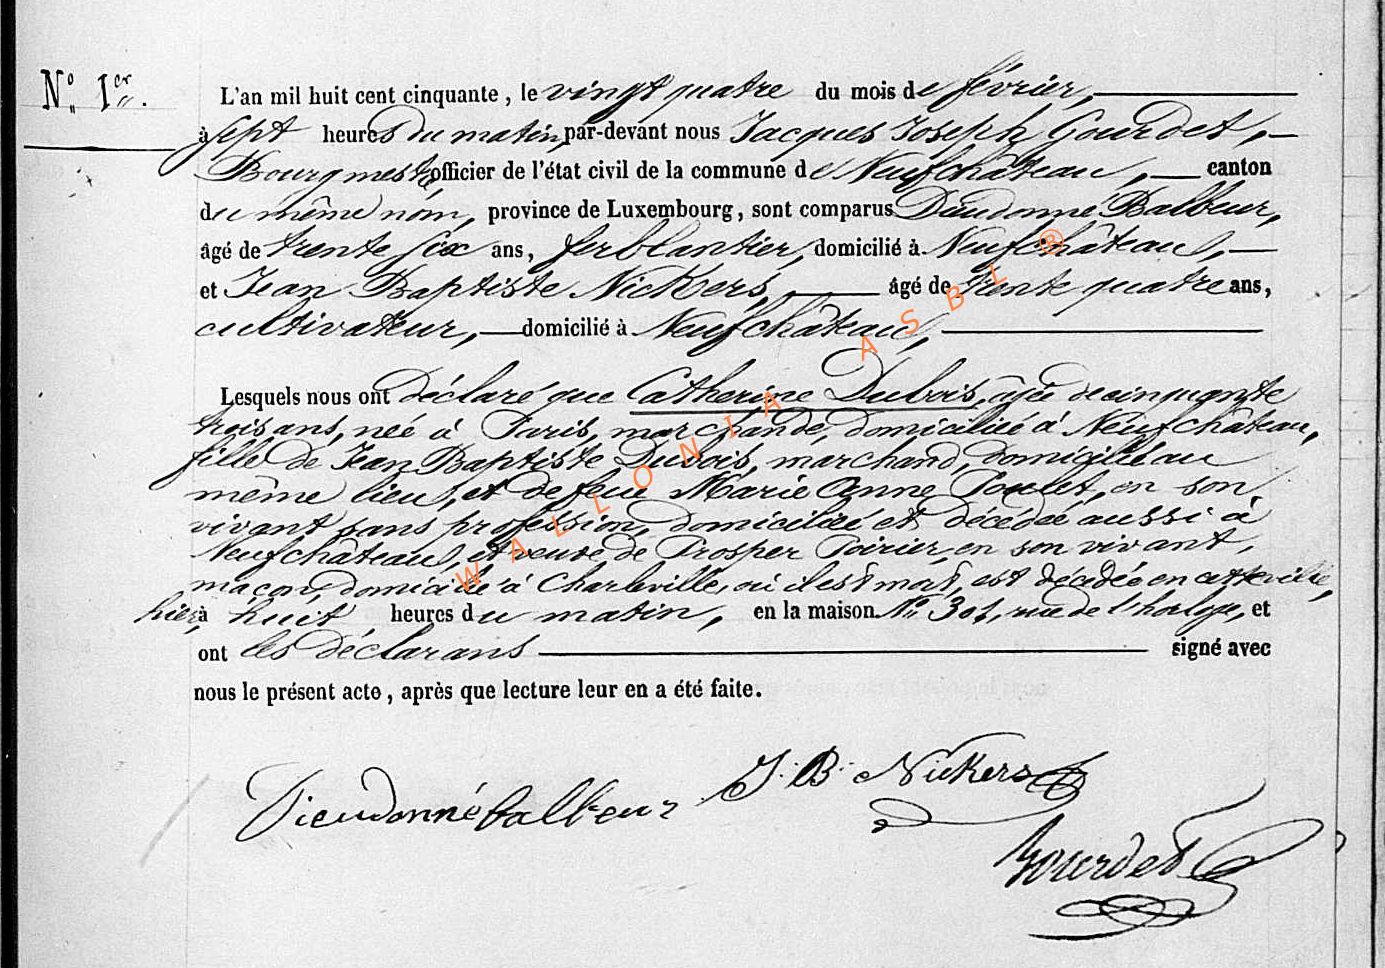 N° 1er.
L'an mil huit cent cinquante, le vingt quatre du mois de février,
à sept heures du matin, par-devant nous Jacques Joseph Gourdet,
Bourgmestre officier de l'état civil de la commune de Neufchâteau, canton
du même nom, province de Luxembourg, sont comparus Dieudonné Balbeur,
âgé de trente six ans, ferblantier, domicilié à Neufchâteau,
et Jean Baptiste Nickers, âgé de trente quatre ans,
cultivateur, domicilié à Neufchâteau,
Lesquels nous ont déclaré que Catherine Dubois, âgée de cinquante
trois ans, née à Paris, marchande, domiciliée à Neufchâteau,
fille de Jean Baptiste Dubois, marchand, domicilié au
même lieu, et de feue Marie Anne Poulet, en son
vivant sans profession, domiciliée et décédée aussi à
Neufchâteau, et veuve de Prosper Poirier, en son vivant,
maçon, domicilié à Charleville, où il est mort, est décédée en cette ville,
hier, à huit heures du matin, en la maison N° 301, rue de l'horloge, et
ont les déclarans signé avec
nous le présent acte, après que lecture leur en a été faite.
Dieudonné Balbeur J. B. Nickers
Gourdet
WALLONIA ASBL ®